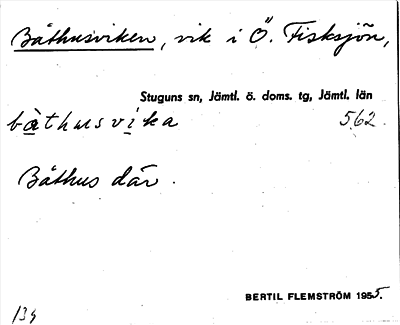 Båthusviken, vik i Ö. Fisksjön,
Stuguns sn, Jämtl. ö. doms. tg, Jämtl. län
bàthusvika 562.
Båthus där.
BERTIL FLEMSTRÖM 1955.
139